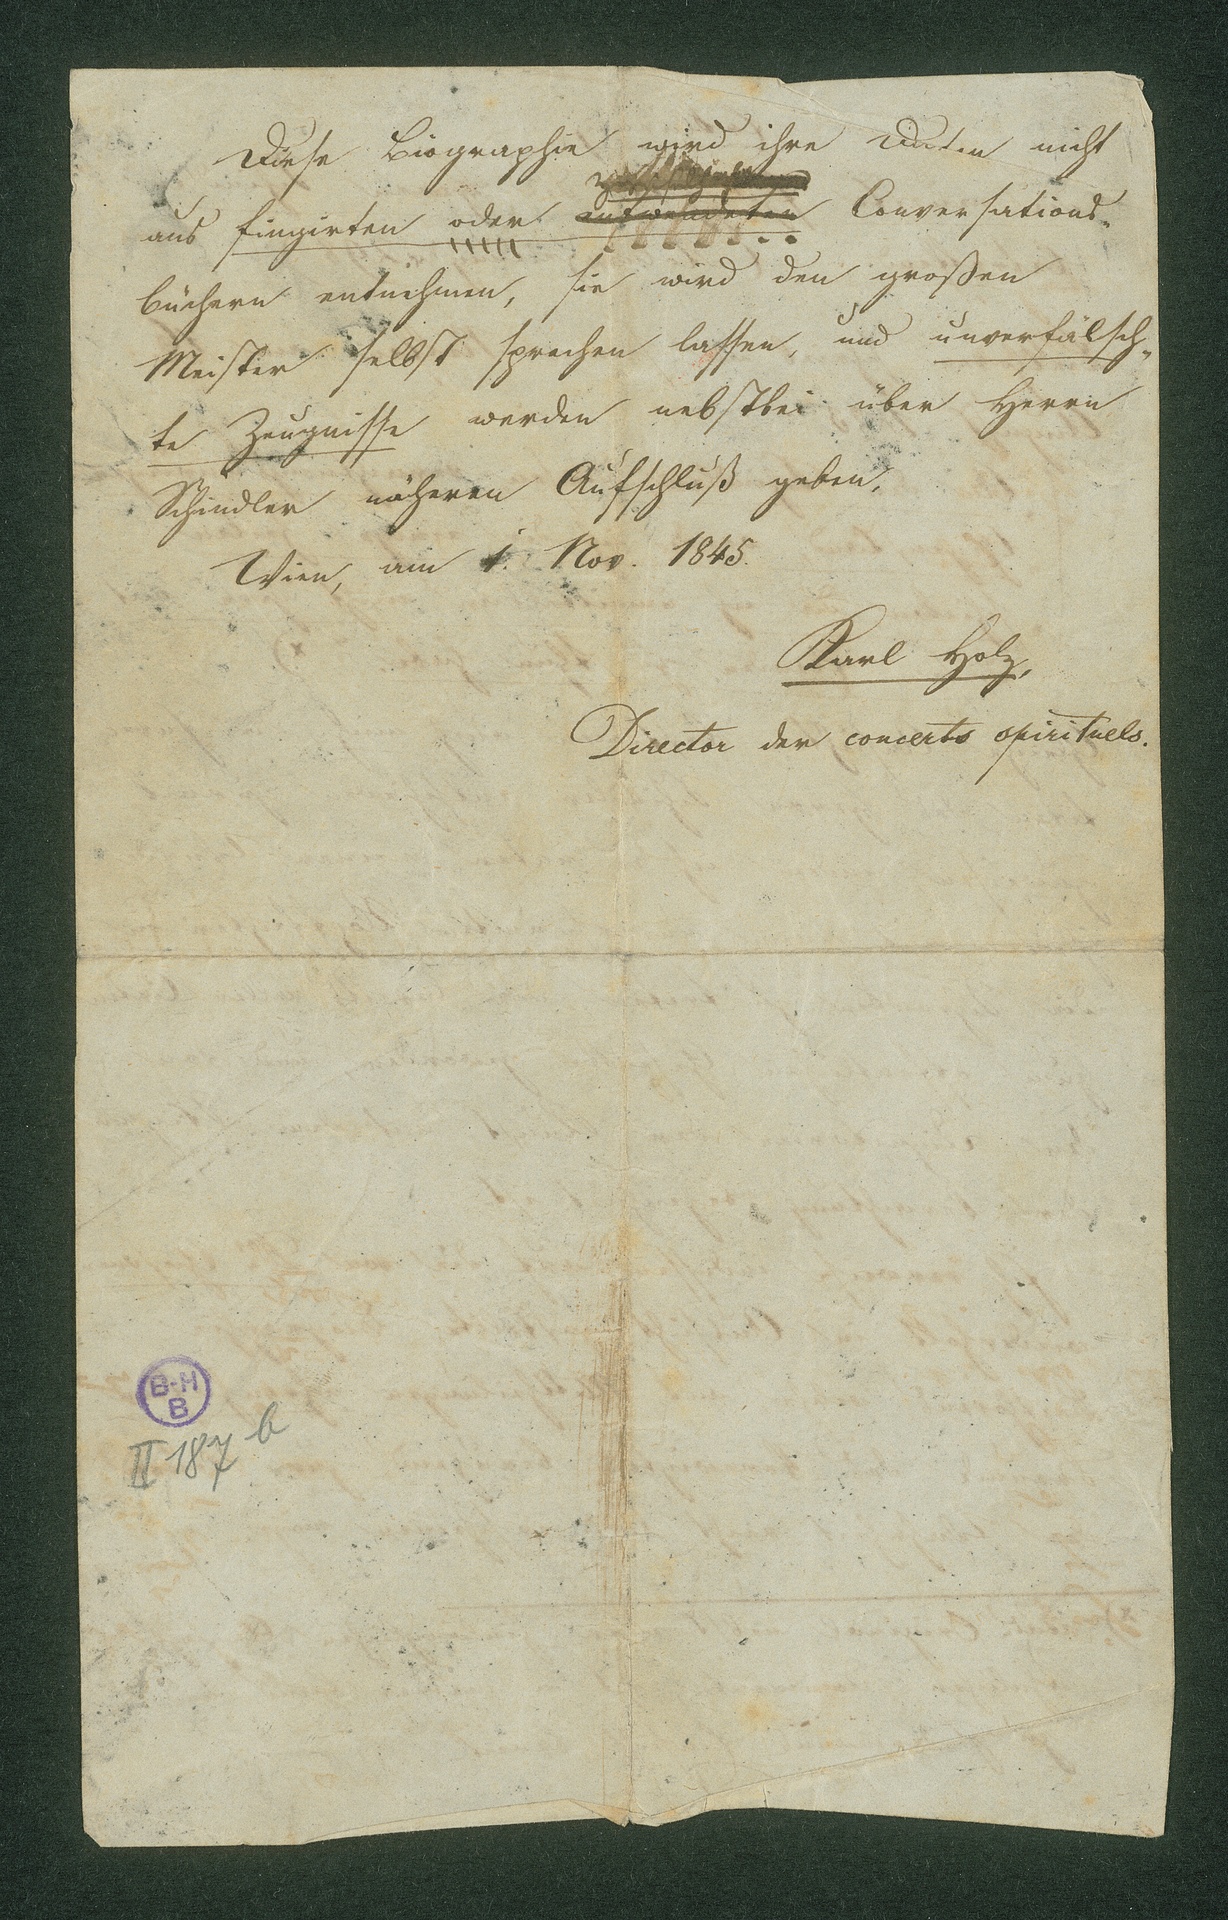 Diese Biographie wird ihre Daten nicht
aus fingirten oder entwendeten Conversations-
büchern entnehmen, sie wird den großen
Meister selbst sprechen lassen, und unverfälsch-
te Zeugnisse werden nebstbei über Herrn
Schindler näheren Aufschluß geben.
Wien, am 1. Nov. 1845.
Karl Holz,
Director der concerts spirituels.
B-H
B
II 187 b